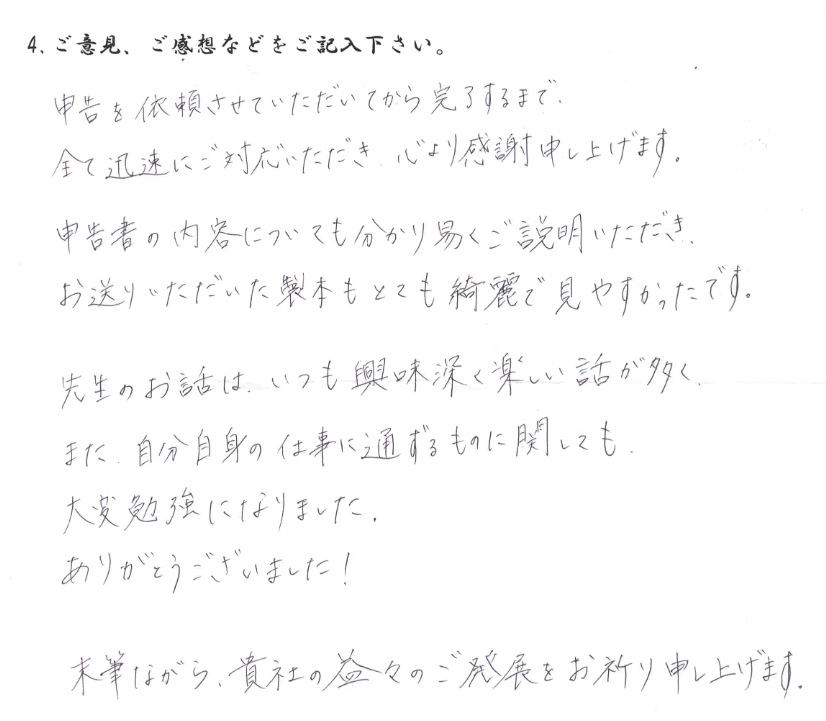 4、ご意見、ご感想などをご記入下さい。
申告を依頼させていただいてから完了するまで、
全て迅速にご対応いただき、心より感謝申し上げます。
申告書の内容についても分かり易くご説明いただき、
お送りいただいた製本もとても綺麗で見やすかったです。
先生のお話は、いつも興味深く楽しい話が多く、
また、自分自身の仕事に通ずるものに関しても、
大変勉強になりました。
ありがとうございました!
末筆ながら、貴社の益々のご発展をお祈り申し上げます。